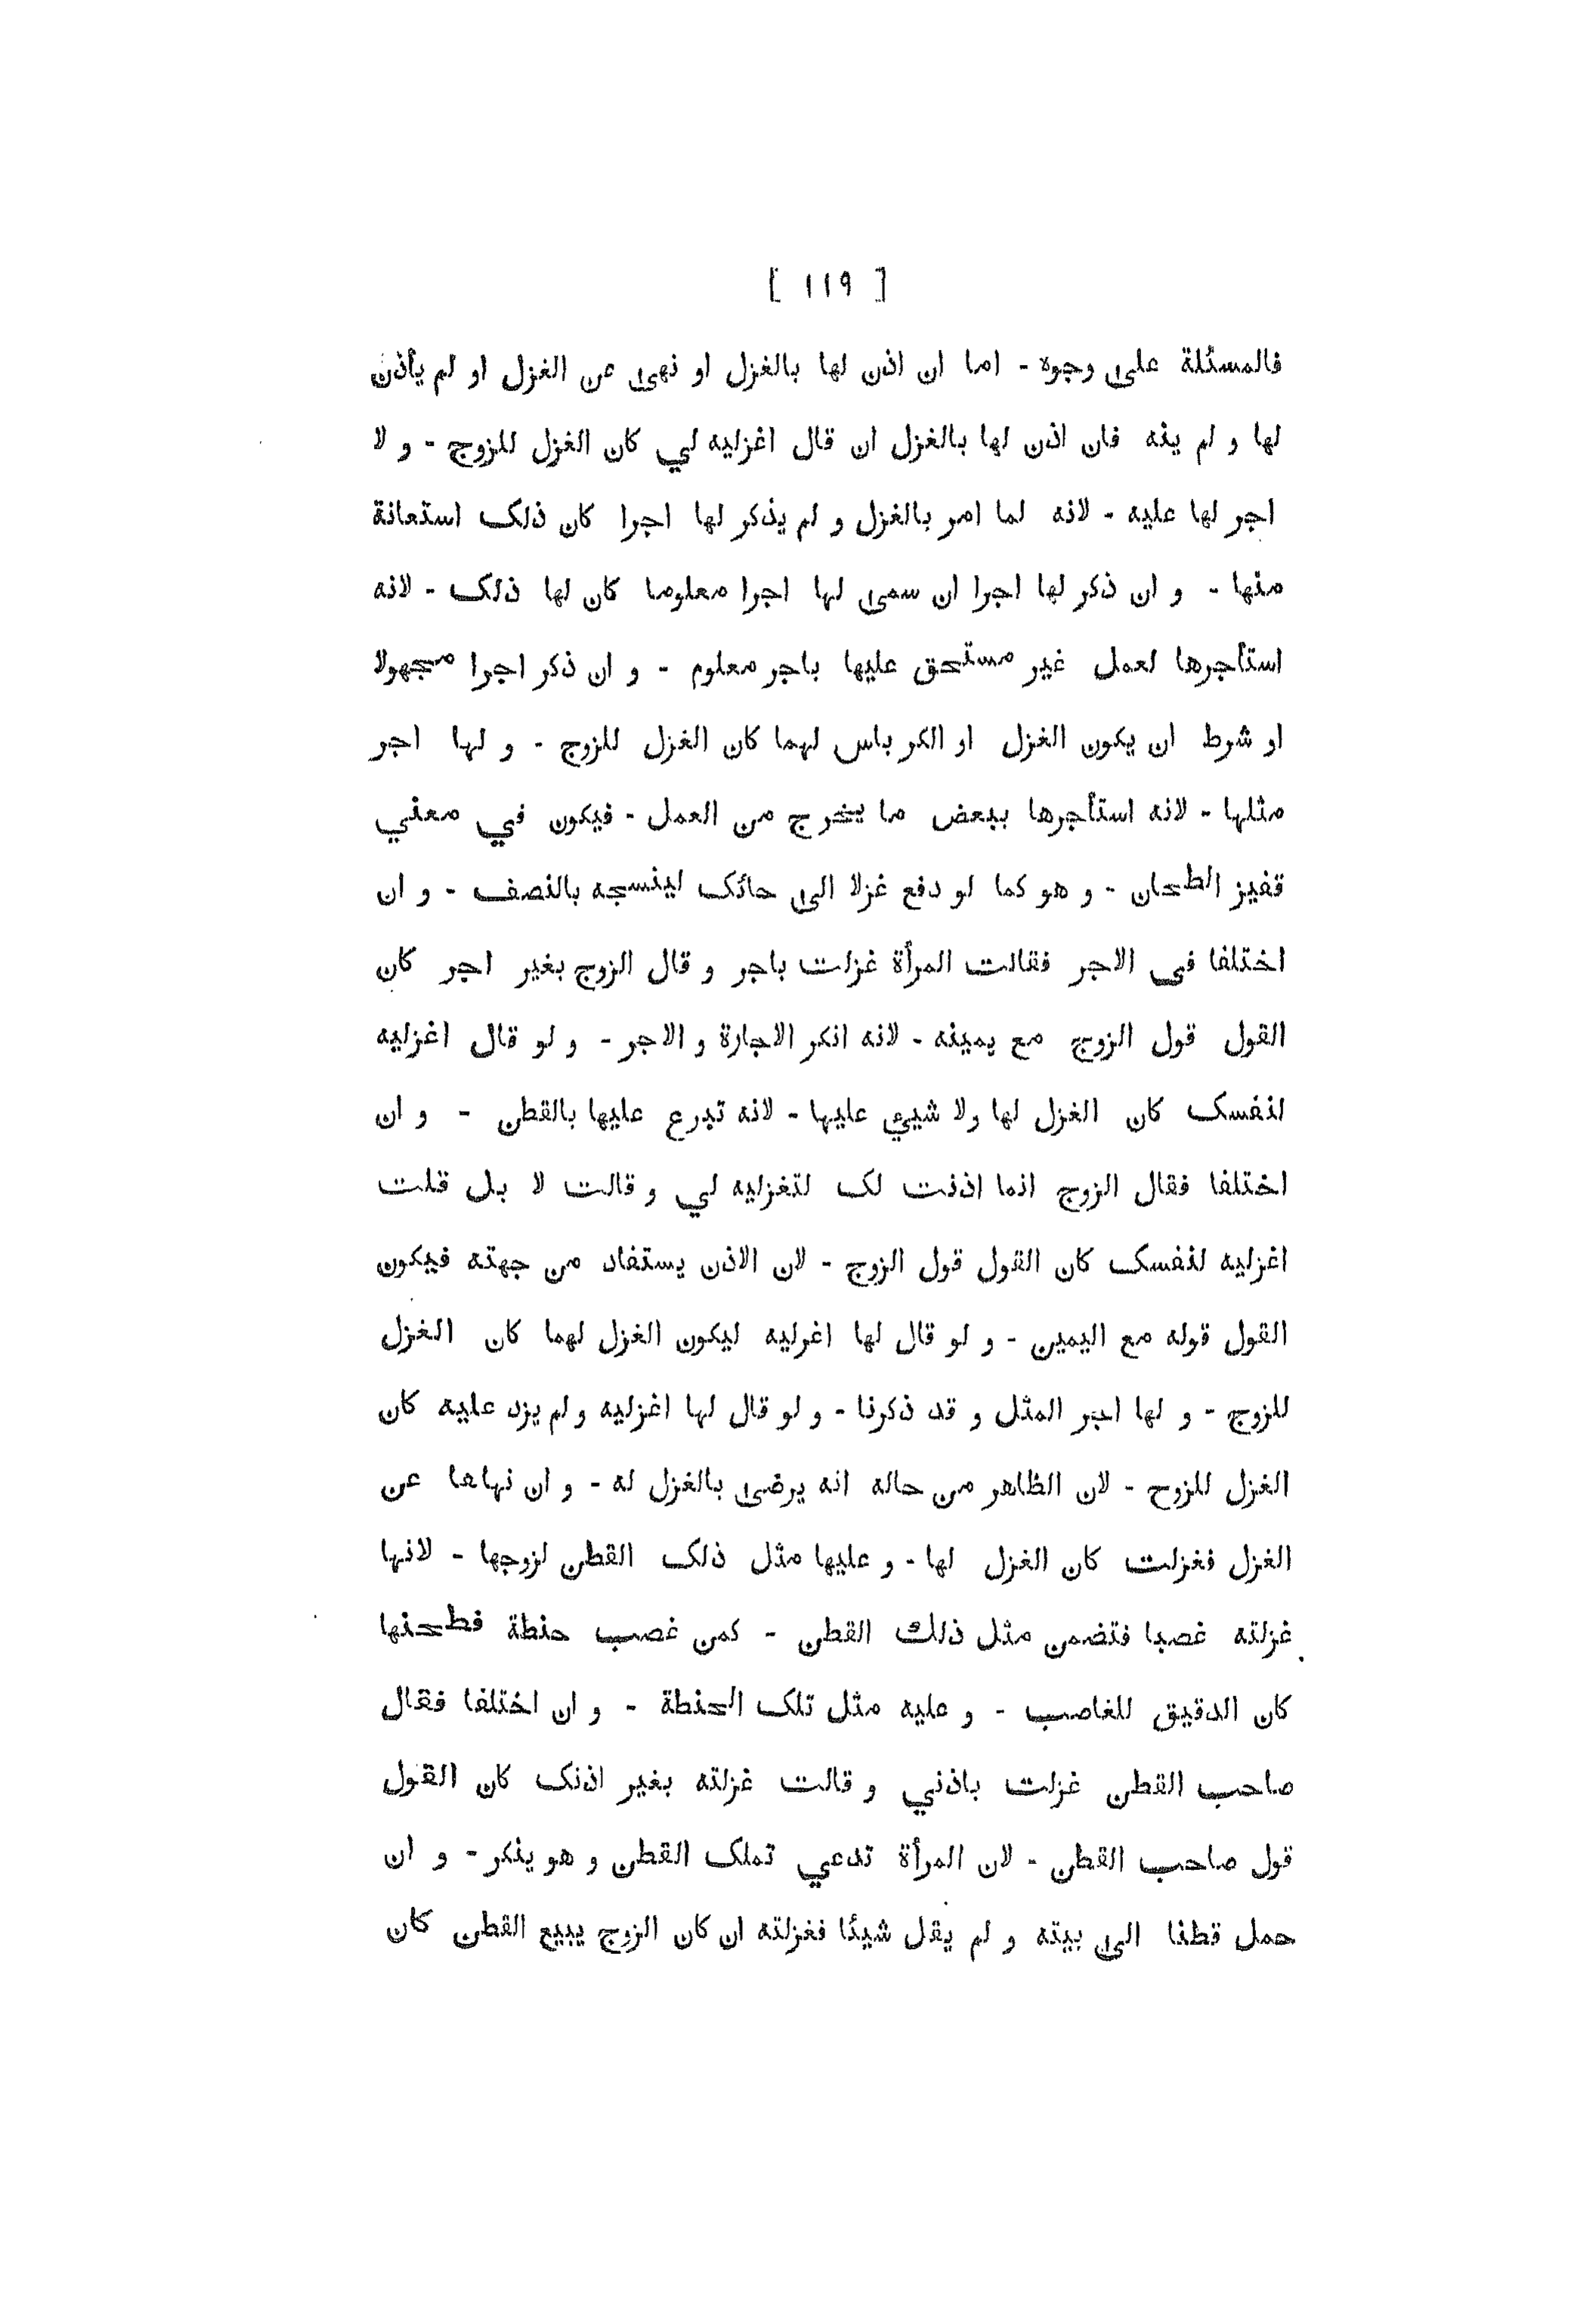 [ ١١٩ ]
فالمسئلة على وجوه - اما ان اذن لها بالغزل او نهى عن الغزل او لم يأذن
لها و لم ينه فان اذن لها بالغزل ان قال اغزليه لي كان الغزل للزوج - و لا
اجر لها عليه - لانه لما امر بالغزل و لم يذكر لها اجرا كان ذلك استعانة
منها - و ان ذكر لها اجرا ان سمى لها اجرا معلوما كان لها ذلك - لانه
استأجرها لعمل غير مستحق عليها باجر معلوم - و ان ذكر اجرا مجهولا
او شرط ان يكون الغزل او الكر باس لهما كان الغزل للزوج - و لها اجر
مثلها - لانه استأجرها ببعض ما يخرج من العمل - فيكون في معني
قفيز الطحان - و هو كما لو دفع غزلا الى حائك لينسجه بالنصف - و ان
اختلفا فى الاجر فقالت المرأة غزلت باجر و قال الزوج بغير اجر كان
القول قول الزوج مع يمينه - لانه انكر الاجارة و الاجر - و لو قال اغزليه
لنفسك كان الغزل لها ولا شيئ عليها - لانه تبرع عليها بالقطن - و ان
اختلفا فقال الزوج انما اذنت لك لتغزليه لي و قالت لا بل قلت
اغزليه لنفسك كان القول قول الزوج - لان الاذن يستفاد من جهته فيكون
القول قوله مع اليمين - و لو قال لها اغرليه ليكون الغزل لهما كان الغزل
للزوج - و لها اجر المثل و قد ذكرنا - و لو قال لها اغزليه و لم يزد عليه كان
الغزل للزوح - لان الظاهر من حاله انه يرضى بالغزل له - و ان نهاها عن
الغزل فغزلت كان الغزل لها - و عليها مثل ذلك القطن لزوجها - لانها
غزلته غصبا فتضمن مثل ذلك القطن - كمن غصب حنطة فطحنها
كان الدقيق للغاصب - و عليه مثل تلك الحنطة - و ان اختلفا فقال
صاحب القطن غزلت باذني و قالت غزلته بغير اذنك كان القول
قول صاحب القطن - لان المرأة تدعي تملك القطن و هو ينكر - و ان
حمل قطنا الى بيته و لم يقل شيئا فغزلته ان كان الزوج يبيع القطن كان